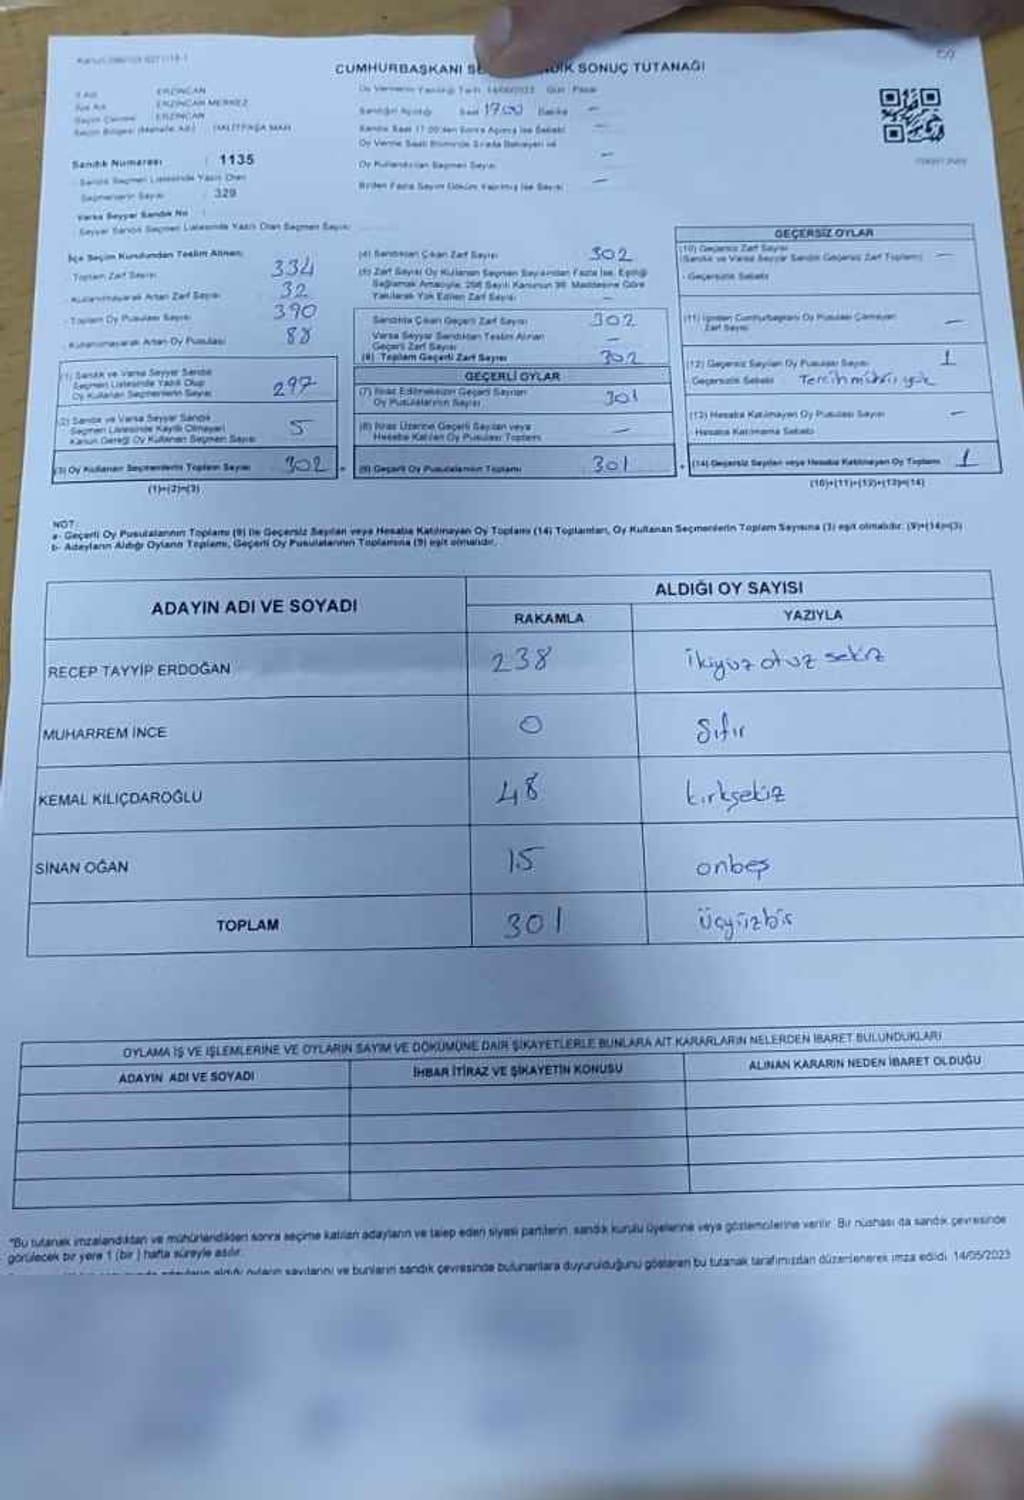 CUMHURBAŞKANI SE NDIK SONUÇ TUTANAĞI
İl Adı ERZİNCAN
İlçe Adı ERZİNCAN MERKEZ
Seçim Çevresi ERZİNCAN
Seçim Bölgesi (Mahalle Adı) HALİTPAŞA MAH
Sandık Numarası : 1135
Sandık Seçmen Listesinde Yazılı Olan
Seçmenlerin Sayısı : 329
Varsa Seyyar Sandık No :
Seyyar Sandık Seçmen Listesinde Yazılı Olan Seçmen Sayısı:
Oy Vermenin Yapıldığı Tarih 14/05/2023 Gün Pazar
Sandığın Açıldığı Saat 17.00 Dakika —
Sandık Saat 17.00'den Sonra Açılmış İse Sebebi —
Oy Verme Saati Bitiminde Sırada Bekleyen ve
Oy Kullandırılan Seçmen Sayısı —
Birden Fazla Sayım Döküm Yapılmış İse Sayısı —
İlçe Seçim Kurulundan Teslim Alınan:
Toplam Zarf Sayısı 334
Kullanılmayarak Artan Zarf Sayısı 32
Toplam Oy Pusulası Sayısı 390
Kullanılmayarak Artan Oy Pusulası 88
(1) Sandık ve Varsa Seyyar Sandık
Seçmen Listesinde Yazılı Olup
Oy Kullanan Seçmenlerin Sayısı 297
(2) Sandık ve Varsa Seyyar Sandık
Seçmen Listesinde Kayıtlı Olmayan
Kanun Gereği Oy Kullanan Seçmen Sayısı 5
(3) Oy Kullanan Seçmenlerin Toplam Sayısı 302
(1)+(2)=(3)
(4) Sandıktan Çıkan Zarf Sayısı 302
(5) Zarf Sayısı Oy Kullanan Seçmen Sayısından Fazla İse, Eşitliği
Sağlamak Amacıyla, 298 Sayılı Kanunun 98. Maddesine Göre
Yakılarak Yok Edilen Zarf Sayısı —
Sandıkta Çıkan Geçerli Zarf Sayısı 302
Varsa Seyyar Sandıktan Teslim Alınan
Geçerli Zarf Sayısı —
(6) Toplam Geçerli Zarf Sayısı 302
GEÇERLİ OYLAR
(7) İtiraz Edilmeksizin Geçerli Sayılan
Oy Pusulalarının Sayısı 301
(8) İtiraz Üzerine Geçerli Sayılan veya
Hesaba Katılan Oy Pusulası Toplamı —
(9) Geçerli Oy Pusulalarının Toplamı 301
GEÇERSİZ OYLAR
(10) Geçersiz Zarf Sayısı
(Sandık ve Varsa Seyyar Sandık Geçersiz Zarf Toplamı) —
- Geçersizlik Sebebi
(11) İçinden Cumhurbaşkanı Oy Pusulası Çıkmayan
Zarf Sayısı —
(12) Geçersiz Sayılan Oy Pusulası Sayısı 1
Geçersizlik Sebebi Tercih mührü yok
(13) Hesaba Katılmayan Oy Pusulası Sayısı —
- Hesaba Katılmama Sebebi
(14) Geçersiz Sayılan veya Hesaba Katılmayan Oy Toplamı 1
(10)+(11)+(12)+(13)=(14)
NOT:
a- Geçerli Oy Pusulalarının Toplamı (9) ile Geçersiz Sayılan veya Hesaba Katılmayan Oy Toplamı (14) Toplamları, Oy Kullanan Seçmenlerin Toplam Sayısına (3) eşit olmalıdır. (9)+(14)=(3)
b- Adayların Aldığı Oyların Toplamı, Geçerli Oy Pusulalarının Toplamına (9) eşit olmalıdır.
ADAYIN ADI VE SOYADI ALDIĞI OY SAYISI
RAKAMLA YAZIYLA
RECEP TAYYİP ERDOĞAN 238 ikiyüz otuz sekiz
MUHARREM İNCE 0 Sıfır
KEMAL KILIÇDAROĞLU 48 kırksekiz
SİNAN OĞAN 15 onbeş
TOPLAM 301 Üçyüzbir
OYLAMA İŞ VE İŞLEMLERİNE VE OYLARIN SAYIM VE DÖKÜMÜNE DAİR ŞİKAYETLERLE BUNLARA AİT KARARLARIN NELERDEN İBARET BULUNDUKLARI
ADAYIN ADI VE SOYADI İHBAR İTİRAZ VE ŞİKAYETİN KONUSU ALINAN KARARIN NEDEN İBARET OLDUĞU
*Bu tutanak imzalandıktan ve mühürlendikten sonra seçime katılan adayların ve talep eden siyasi partilerin, sandık kurulu üyelerine veya gözlemcilerine verilir. Bir nüshası da sandık çevresinde
görülecek bir yere 1 (bir) hafta süreyle asılır.
adayların aldığı oyların sayılarını ve bunların sandık çevresinde bulunanlara duyurulduğunu gösteren bu tutanak tarafımızdan düzenlenerek imza edildi. 14/05/2023